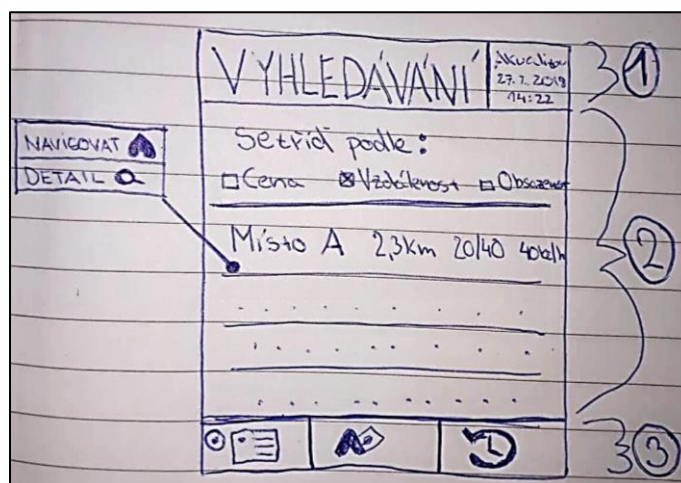 VYHLEDÁVÁNÍ
27.7.2018
14:22
1
NAVIGOVAT
DETAIL
Setřiď podle:
Cena Vzdálenost Obsazenost
Místo A 2,3km 20/40 40kč/h
2
3